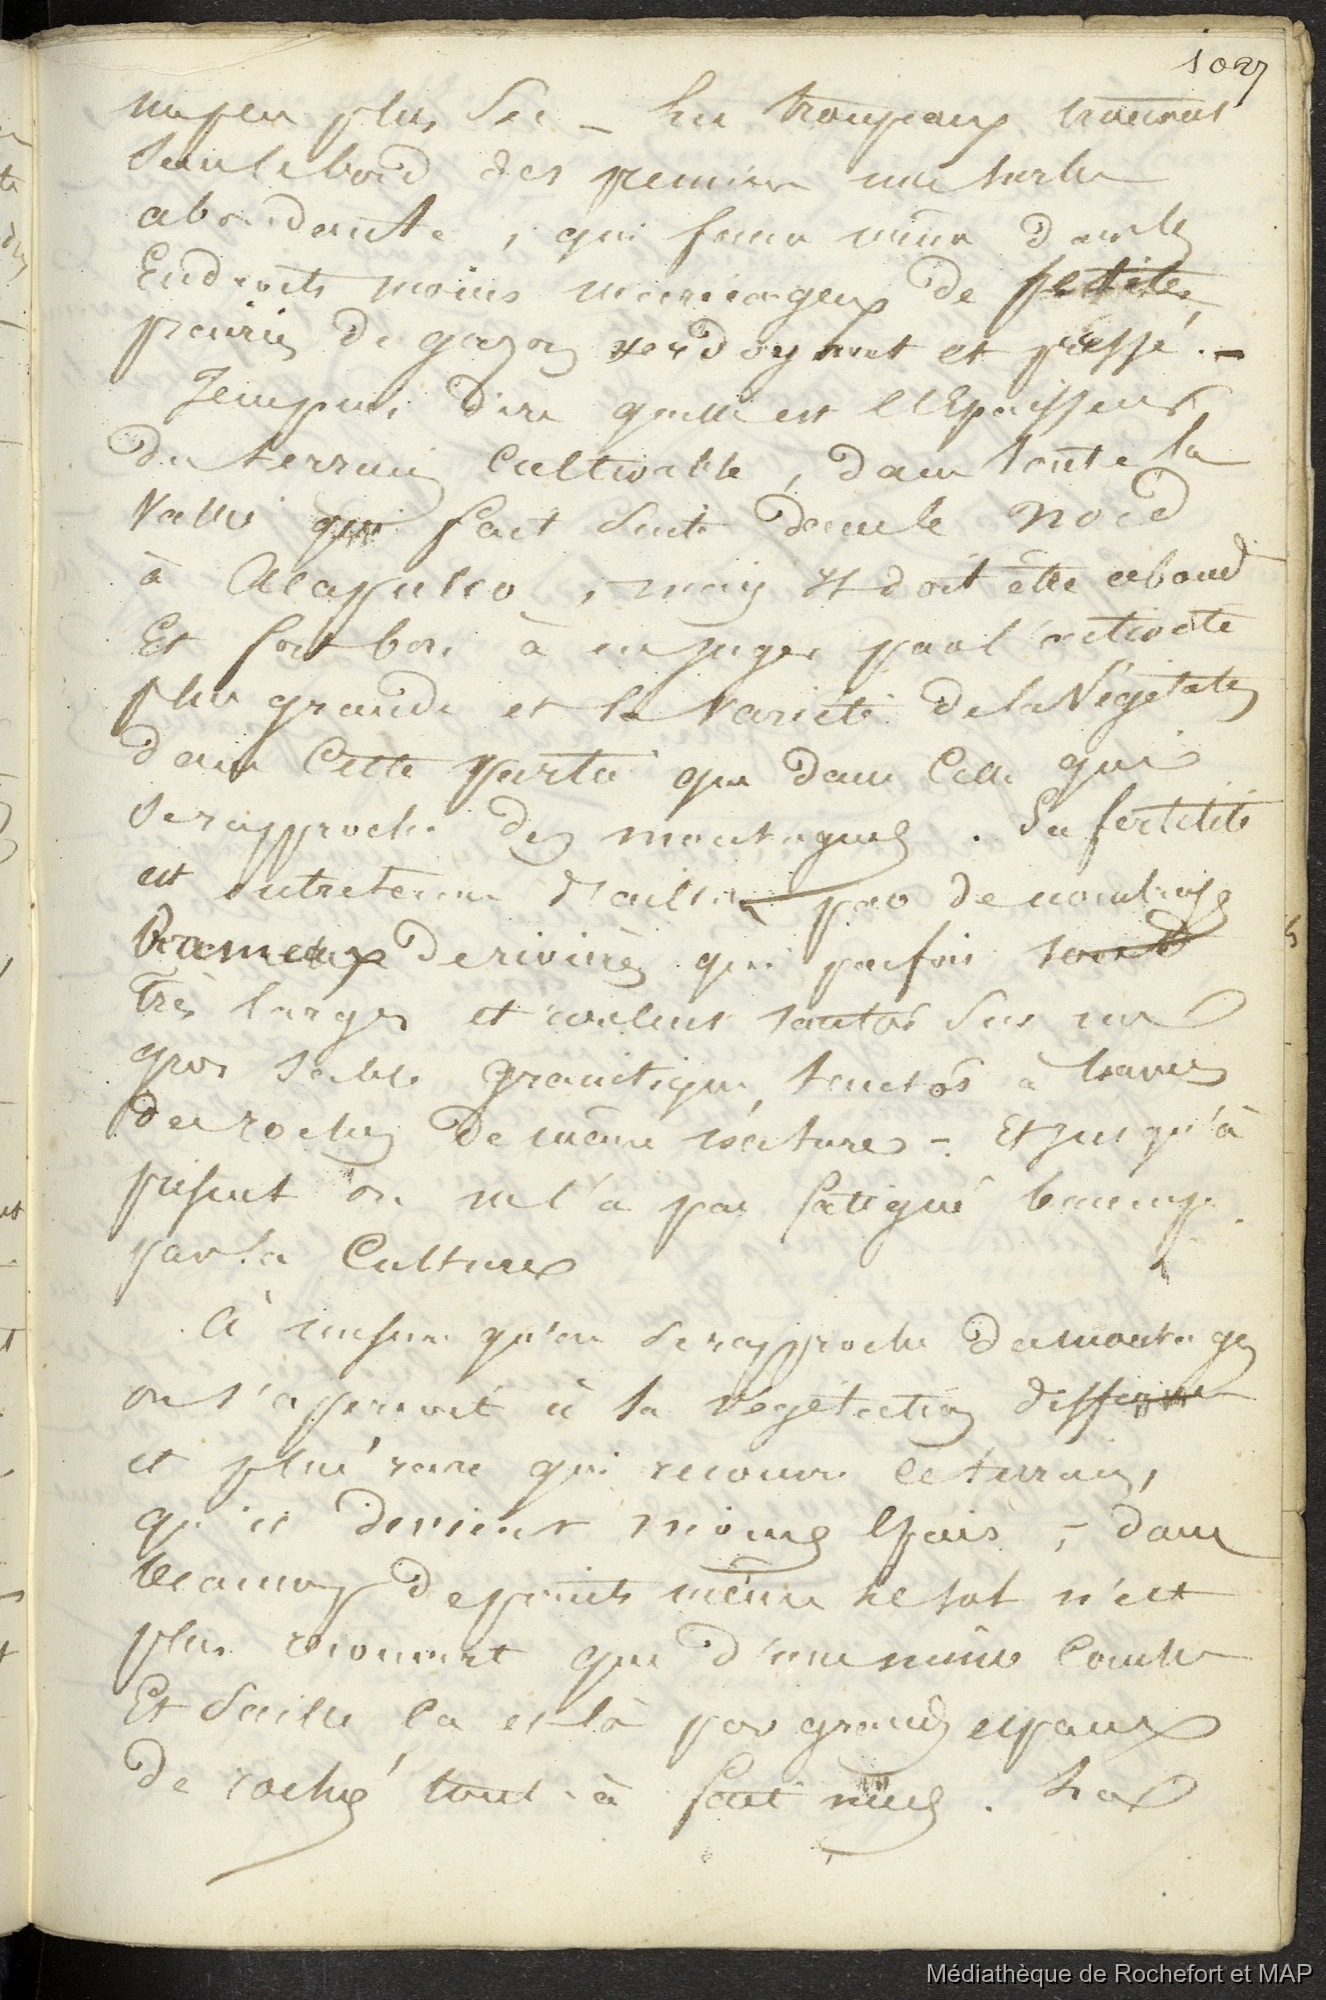 1027
un peu plus sec _ Les troupeaux trouvent
sur le bord des premiers une herbe
abondante, qui forme même dans les
Endroits moins marécageux de petites
prairies de gazon verdoyant et pressé. _
Je ne puis dire quelle est l'Epaisseur
Du terrain Cultivable, dans toute la
Vallée qui fait suite dans le Nord
à Acapulco, mais il doit être abond
Et fort bon à en juger par l'activité
plus grande et la Variété de la Végétation
dans Cette partie que dans Celle qui
se rapproche des montagnes. Sa fertilité
est entretenue d'ailleurs par de nombreux
Rameaux de rivières qui parfois sont
Très larges et coulent tantôt sur un
gros sable granitique, tantôt à travers
des roches de même nature _. Et jusqu'à
présent on ne l'a pas fatigué beaucoup
par la Culture
À mesure qu'on se rapproche des montagnes
on s'aperçoit à la végétation différente
et plus rare qui recouvre le terrain,
qu'il devient moins Epais ; _ dans
beaucoup de points même le sol n'est
plus recouvert que d'une mince Couche
Et saille çà et là par grands espaces
de roches tout à fait nues. La
Médiathèque de Rochefort et MAP